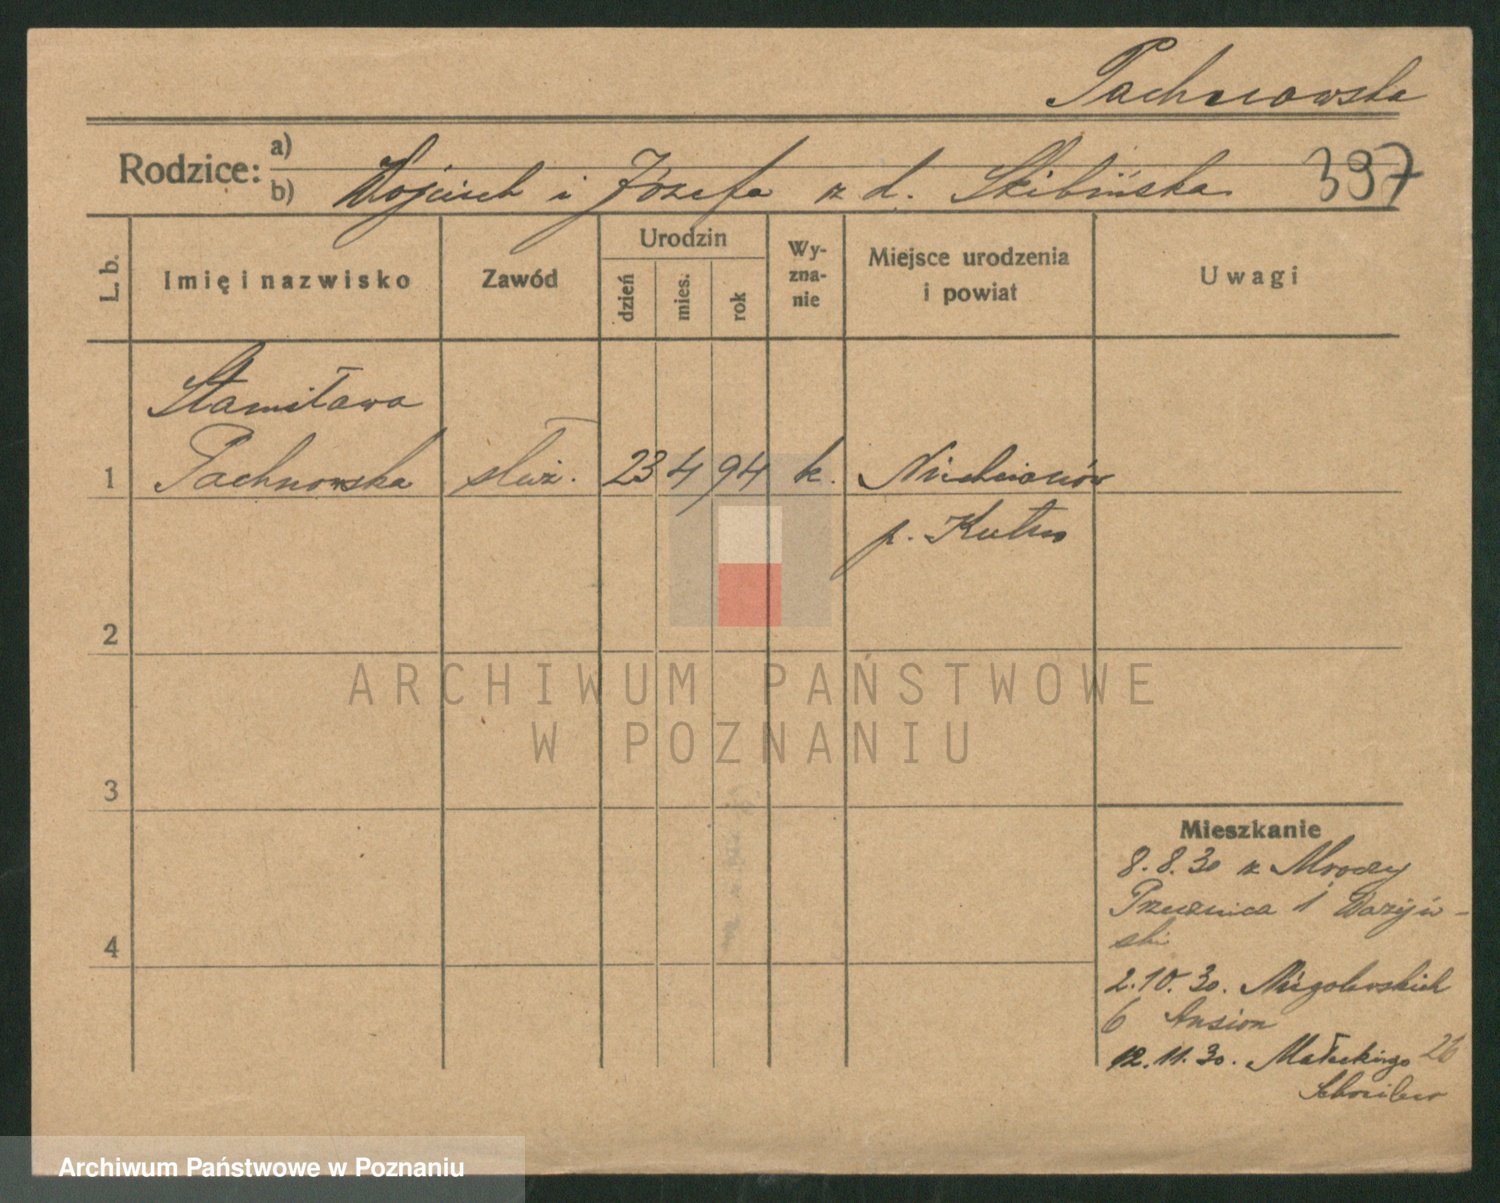 Pachnowska
Rodzice: a)
b) Wojciech i Józefa z d. Skibińska 397
L. b.
Imię i nazwisko
Zawód
Urodzin
dzień
mies.
rok
Wy-
zna-
nie
Miejsce urodzenia
i powiat
Uwagi
Stanisława
1 Pachnowska służ. 23 4 94 k.
p. Kutno
2
3
4
Mieszkanie
8.8.30 z Mroczy
Przecznica 1
ski
2.10.30. Niegolewskich
6
12.11.30. Małeckiego 26
ARCHIWUM PAŃSTWOWE
W POZNANIU
Archiwum Państwowe w Poznaniu